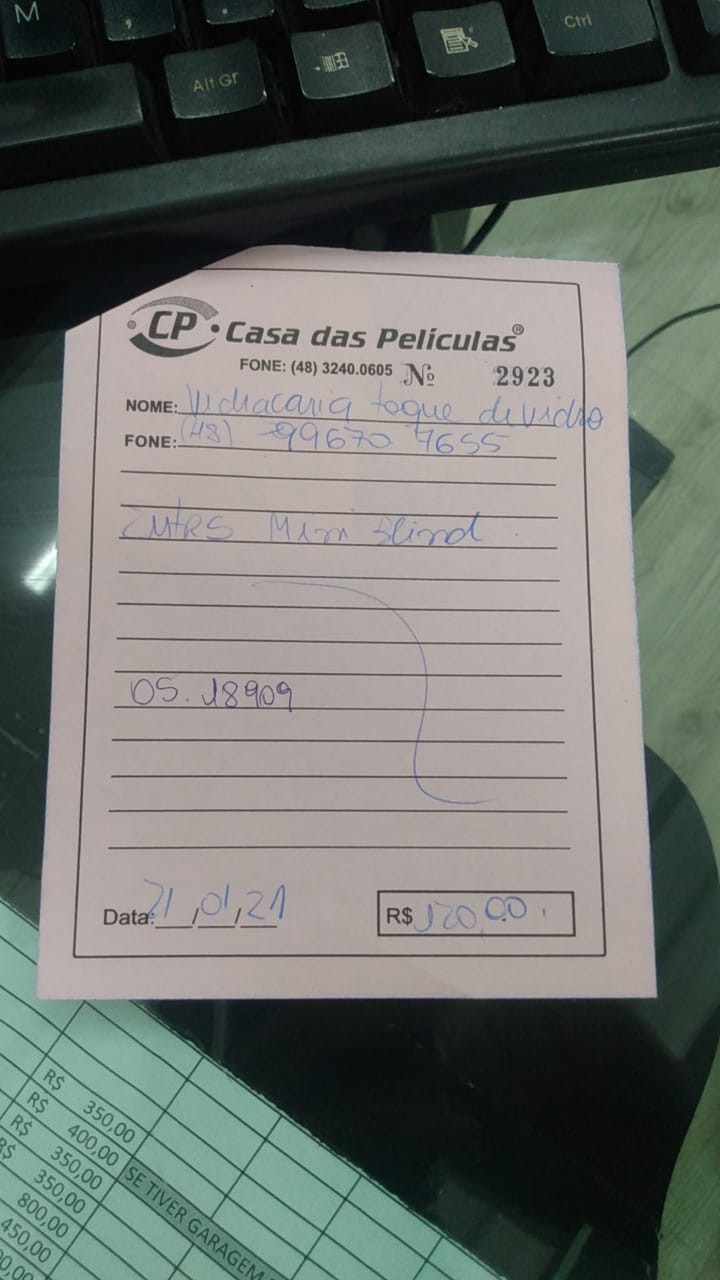 M , . Ctrl
Alt Gr
CP Casa das Películas®
FONE: (48) 3240.0605 Nº 2923
NOME: Vidraçaria toque de vidro
FONE: (48) 99670 7655
2MTRS Mini Blind
OS. 18909
Data: 21/01/21 R$ 120,00
R$ 350,00
R$ 400,00
R$ 350,00
R$ 350,00
800,00
450,00
SE TIVER GARAGEM